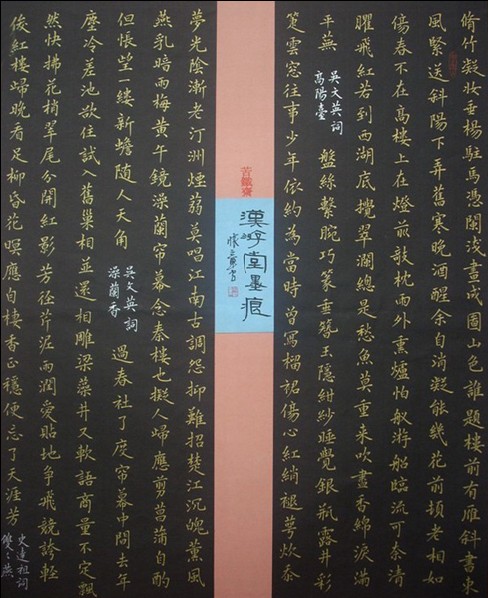 脩竹凝妝垂楊駐馬憑闌淺畫成圖山色誰題樓前有雁斜書東
風緊送斜陽下弄舊寒晚酒醒余自消凝能幾花前頓老相如
傷春不在高樓上在燈前敧枕雨外熏爐怕艤游船臨流可奈清
臞飛紅若到西湖底攪翠瀾總是愁魚莫重來吹盡香綿淚滿
平蕪
吳文英詞
高陽臺
盤絲繫腕巧篆垂簪玉隱紺紗睡覺銀瓶露井彩
箑雲窗往事少年依約為當時曾寫榴裙傷心紅綃褪萼炊黍
漢堂墨痕
夢光陰漸老汀洲煙蒻莫唱江南古調怨抑難招楚江沉魄薰風
燕乳暗雨梅黃午鏡澡蘭帘幕念秦樓也擬人歸應剪菖蒲自酌
但悵望一縷新蟾随人天角
吳文英詞
澡蘭香
過春社了度帘幕中間去年
塵冷差池欲住試入舊巢相並還相雕梁藻井又軟語商量不定飄
然快拂花梢翠尾分開紅影芳徑芹泥雨潤愛貼地爭飛競誇輕
俊紅樓歸晚看足柳昏花暝應自棲香正穩便忘了天涯芳
史達祖詞
雙〻燕